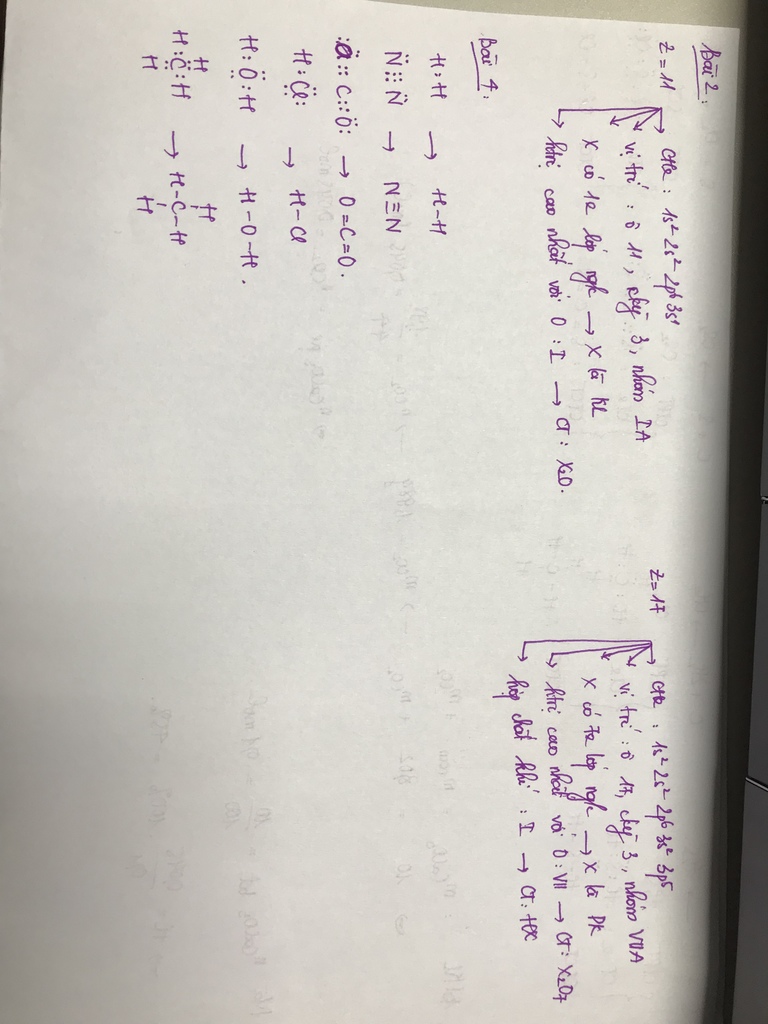 Bài 2:
Z = 11
CHe: 1s² 2s² 2p⁶ 3s¹
vị trí: ô 11, chkỳ 3, nhóm IA
X có 1e lớp ngc → X là KL
htrị cao nhất với O: I → CT: X₂O.
Z = 17
CHe: 1s² 2s² 2p⁶ 3s² 3p⁵
vị trí: ô 17, chkỳ 3, nhóm VIIA
X có 7e lớp ngc → X là PK
htrị cao nhất với O: VII → CT: X₂O₇
hợp chất khí: I → CT: HX
Bài 4:
H:H → H-H
N̈:::N̈ → N≡N
:Ö::C::Ö: → O=C=O.
H:C̈l: → H-Cl
H:Ö:H → H-O-H.
H
H:C̈:H → H-C-H
H
H
H